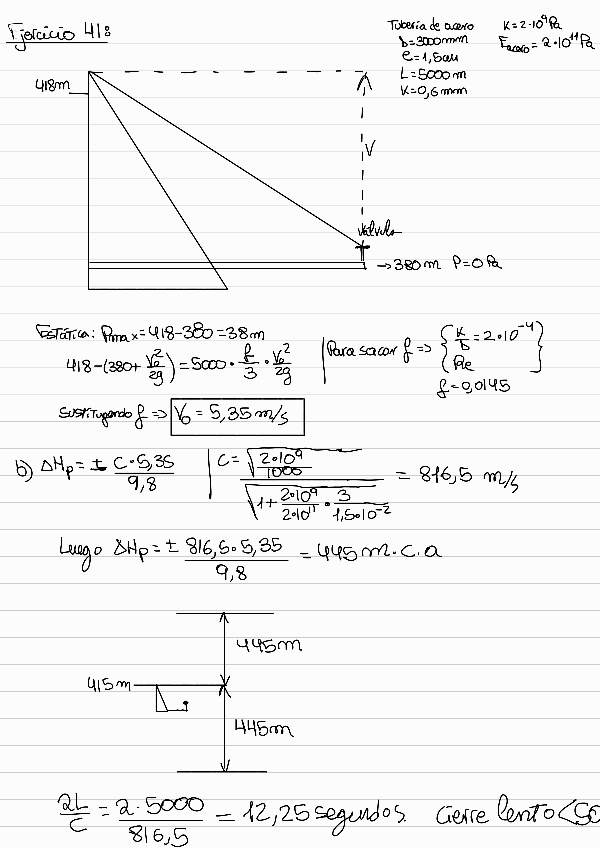 Ejercicio 41:
Tubería de acero
D=3000mm
e=1,5cm
L=5000m
K=0,6mm
K=2·10⁹Pa
Eacero=2·10¹¹Pa
418m
V
Válvula
→380m P=0Pa
Estática: Pmax=418-380=38m
418-(380+V₀²/2g)=5000·f/3·V₀²/2g
Para sacar f => {K/D=2·10⁻⁴
Re}
f=0,0145
Sustituyendo f => V₀=5,35m/s
b) ΔHp=± C·5,35/9,8
C=√(2·10⁹/1000)/√(1+2·10⁹/2·10¹¹·3/1,5·10⁻²) = 816,5 m/s
Luego ΔHp=± 816,5·5,35/9,8 = 445m.c.a
445m
415m
445m
2L/C = 2·5000/816,5 = 12,25 segundos. Cierre lento<